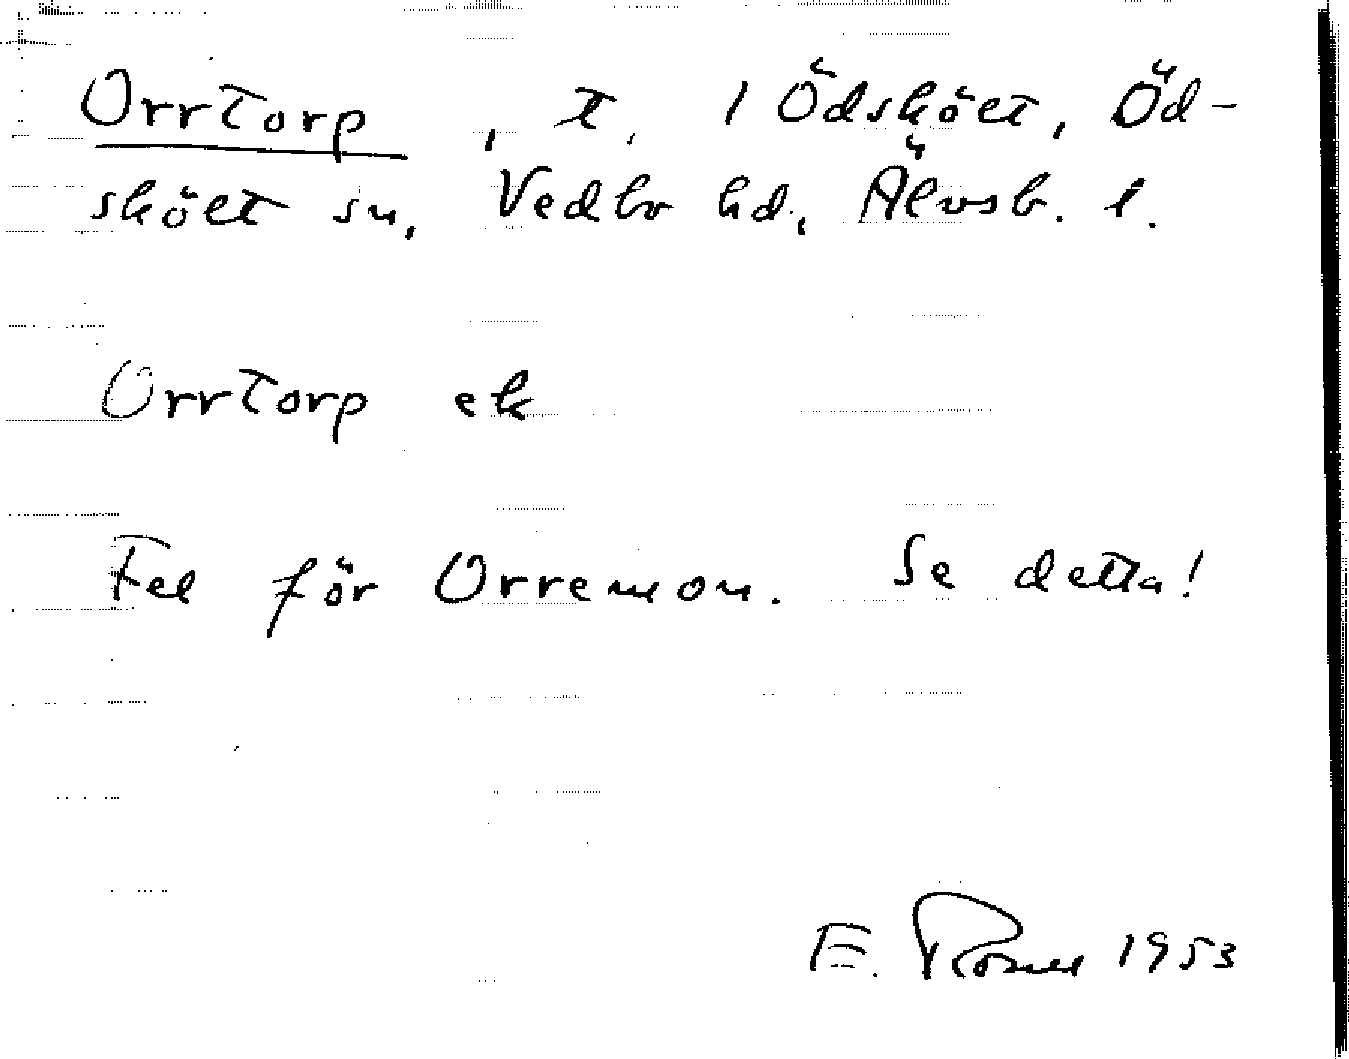 Orrtorp, t. i Ödskölt, Öd-
skölt sn, Vedbo hd, Älvsb. l.
Orrtorp ek
Fel för Orremon. Se detta!
E. 1953